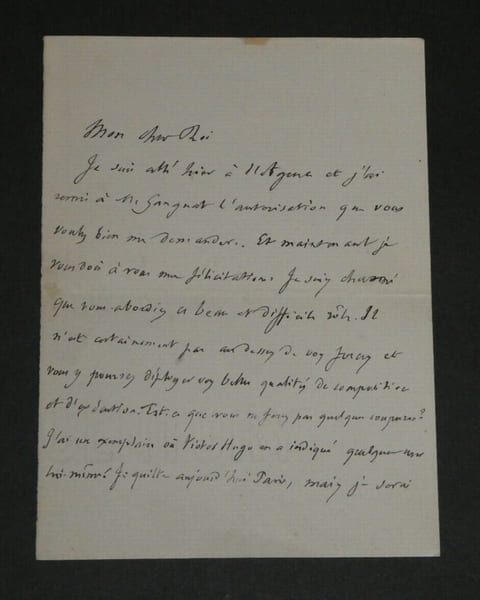 Mon cher Roi
Je suis allé hier à l'Agence et j'ai
remis à M. Gangnat l'autorisation que vous
voulez bien me demander. Et maintenant je
vous dois à vous mes félicitations. Je suis charmé
que vous abordiez ce beau et difficile rôle. Il
n'est certainement pas au dessus de vos forces et
vous y pourrez déployer vos belles qualités de composition
et d'exécution. Est-ce que vous ne ferez pas quelques coupures?
J'ai un exemplaire où Victor Hugo en a indiqué quelques unes
lui-même. Je quitte aujourd'hui Paris, mais je serai